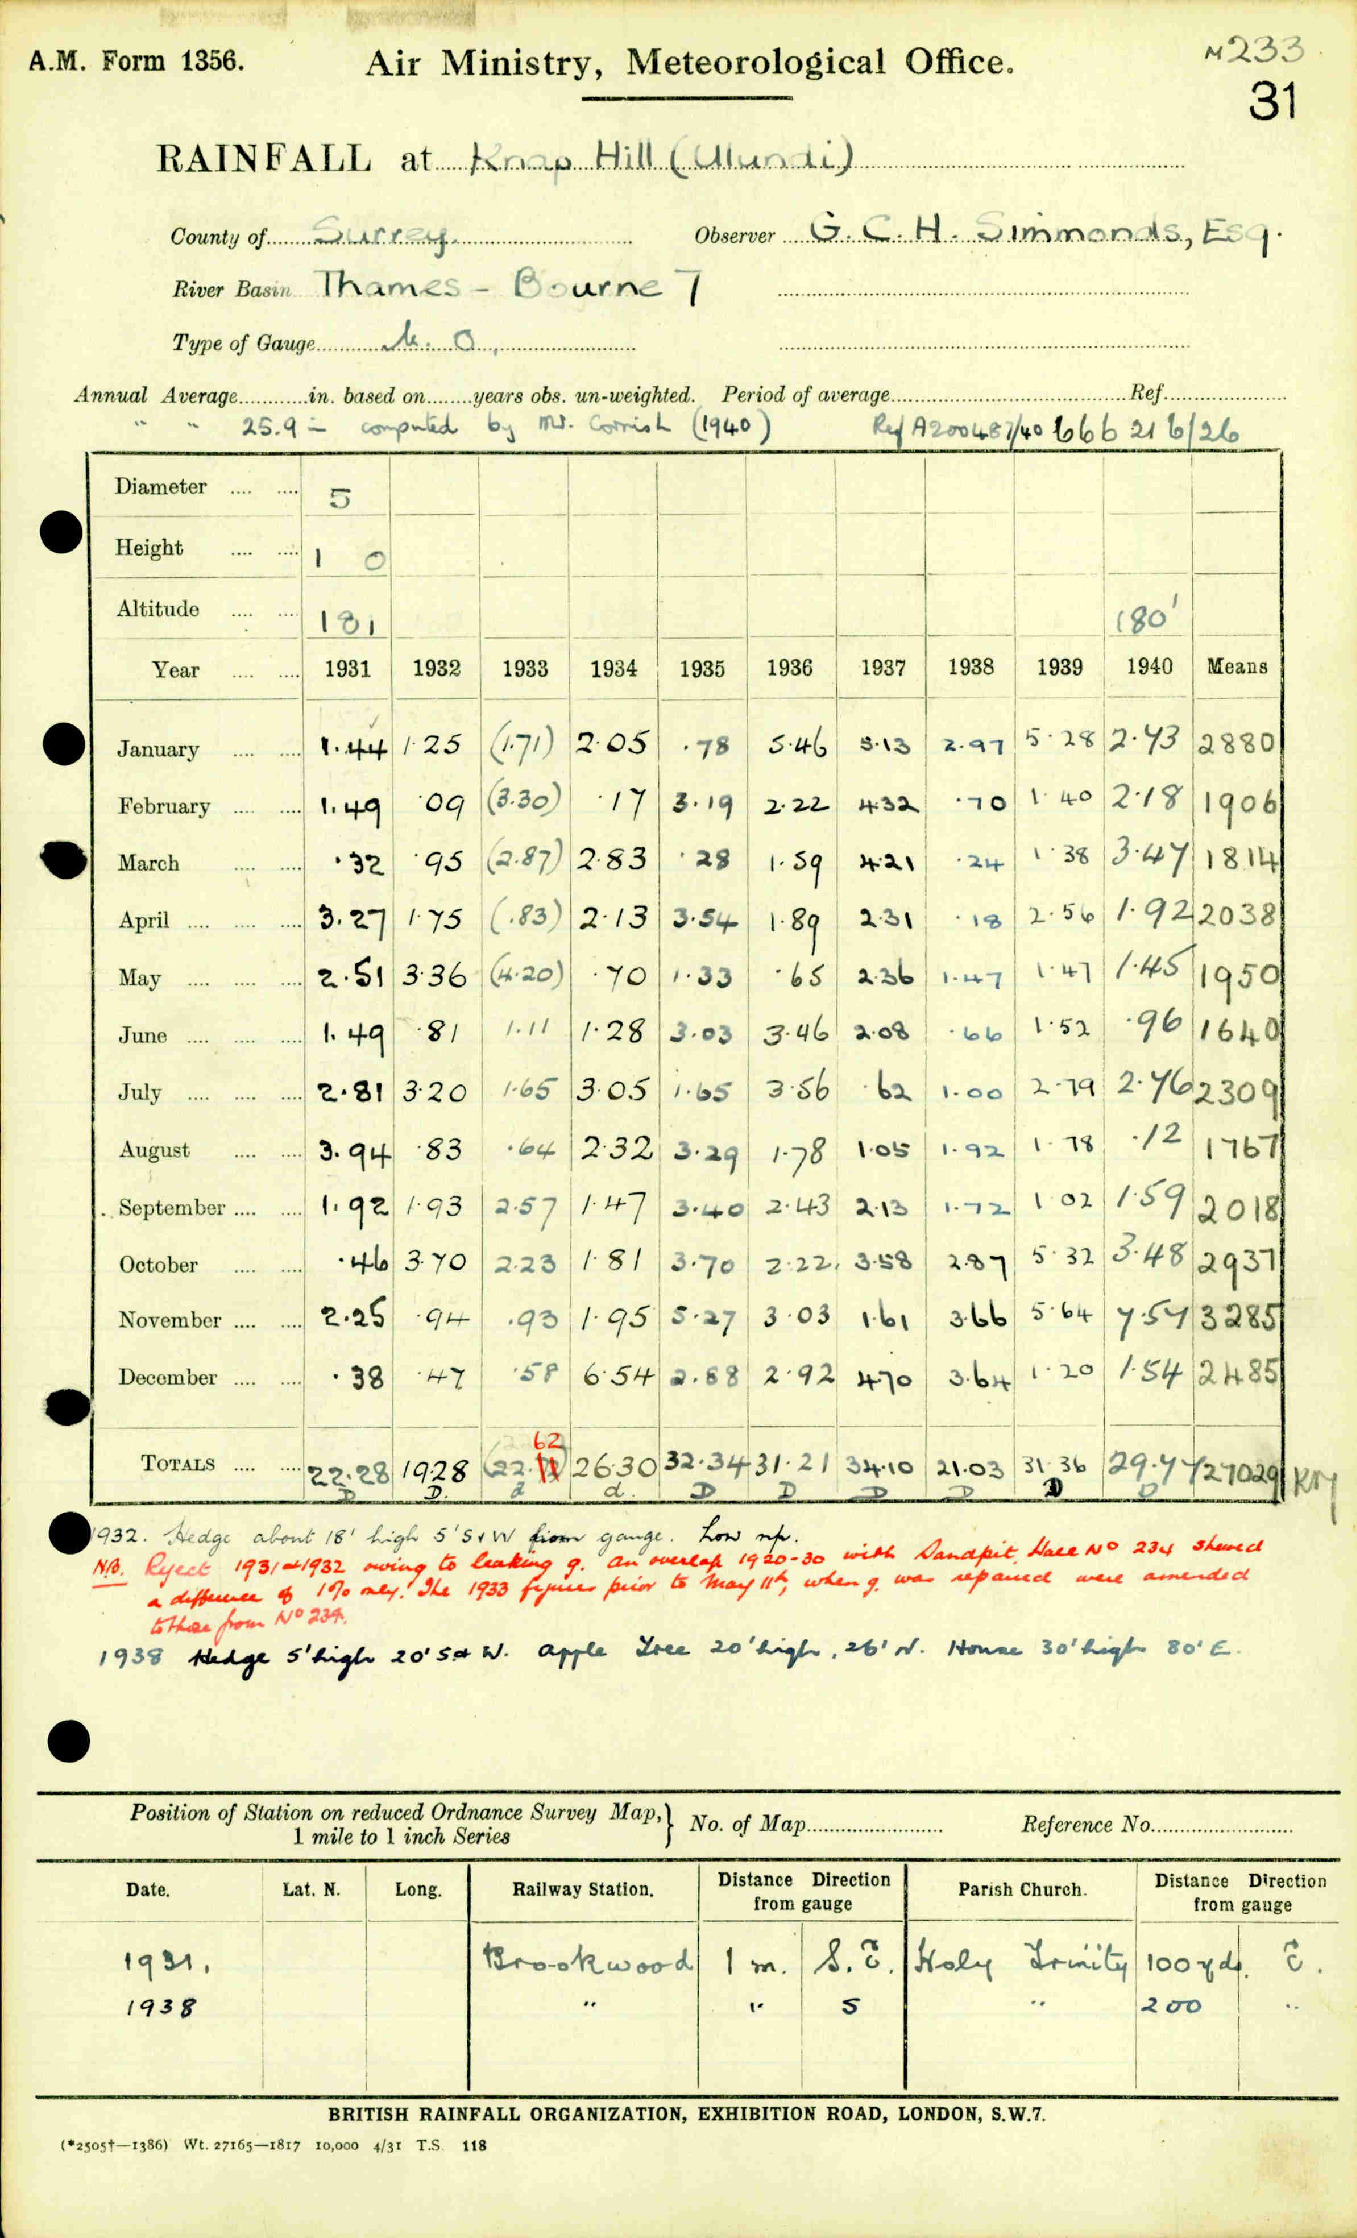 A.M. Form 1356.
Air Ministry, Meteorological Office.
M233
31
RAINFALL at Knap Hill (Ulundi)
County of Surrey. Observer G. C. H. Simmonds, Esq.
River Basin Thames – Bourne 7
Type of Gauge M. O.
Annual Average in. based on years obs. un-weighted. Period of average Ref.
" " 25.9 in computed by Mr. Cornish (1940) Ref A200487/40 666 21 6/26
Diameter 5
Height 1 0
Altitude 181 180'
Year 1931 1932 1933 1934 1935 1936 1937 1938 1939 1940 Means
January 1.44 1.25 (1.71) 2.05 .78 5.46 5.13 2.97 5.28 2.43 2880
February 1.49 .09 (3.30) .17 3.19 2.22 4.32 .70 1.40 2.18 1906
March .32 .95 (2.87) 2.83 .28 1.59 4.21 .24 1.38 3.47 1814
April 3.27 1.75 (.83) 2.13 3.54 1.89 2.31 .18 2.56 1.92 2038
May 2.51 3.36 (4.20) .70 1.33 .65 2.36 1.47 1.47 1.45 1950
June 1.49 .81 1.11 1.28 3.03 3.46 2.08 .66 1.52 .96 1640
July 2.81 3.20 1.65 3.05 1.65 3.56 .62 1.00 2.79 2.76 2309
August 3.94 .83 .64 2.32 3.29 1.78 1.05 1.92 1.78 .12 1767
September 1.92 1.93 2.57 1.47 3.40 2.43 2.13 1.72 1.02 1.59 2018
October .46 3.70 2.23 1.81 3.70 2.22 3.58 2.87 5.32 3.48 2937
November 2.25 .94 .93 1.95 5.27 3.03 1.61 3.66 5.64 7.57 3285
December .38 .47 .58 6.54 2.88 2.92 4.70 3.64 1.20 1.54 2485
62
TOTALS 22.28 19.28 (22. ) 26.30 32.34 31.21 34.10 21.03 31.36 29.47 27029 KM
D D d d. D D D D D D
1932. Hedge about 18' high 5' S & W from gauge. Low
N.B. Reject 1931 & 1932 owing to leaking g. An overlap 1920-30 with Sandpit Hall No 234 showed
a difference of 1% only. The 1933 figures prior to May 11th, when g. was repaired were amended
to those from No 234.
1938 Hedge 5' high 20' S & W. Apple Tree 20' high, 26' N. House 30' high 80' E.
Position of Station on reduced Ordnance Survey Map, } No. of Map Reference No.
1 mile to 1 inch Series
Date. Lat. N. Long. Railway Station. Distance Direction from gauge Parish Church. Distance Direction from gauge
1931. Brookwood 1 m. S.E. Holy Trinity 100 yds. E.
1938 " " S " 200 "
BRITISH RAINFALL ORGANIZATION, EXHIBITION ROAD, LONDON, S.W.7.
(*2505†—1386) Wt. 27165—1817 10,000 4/31 T.S. 118